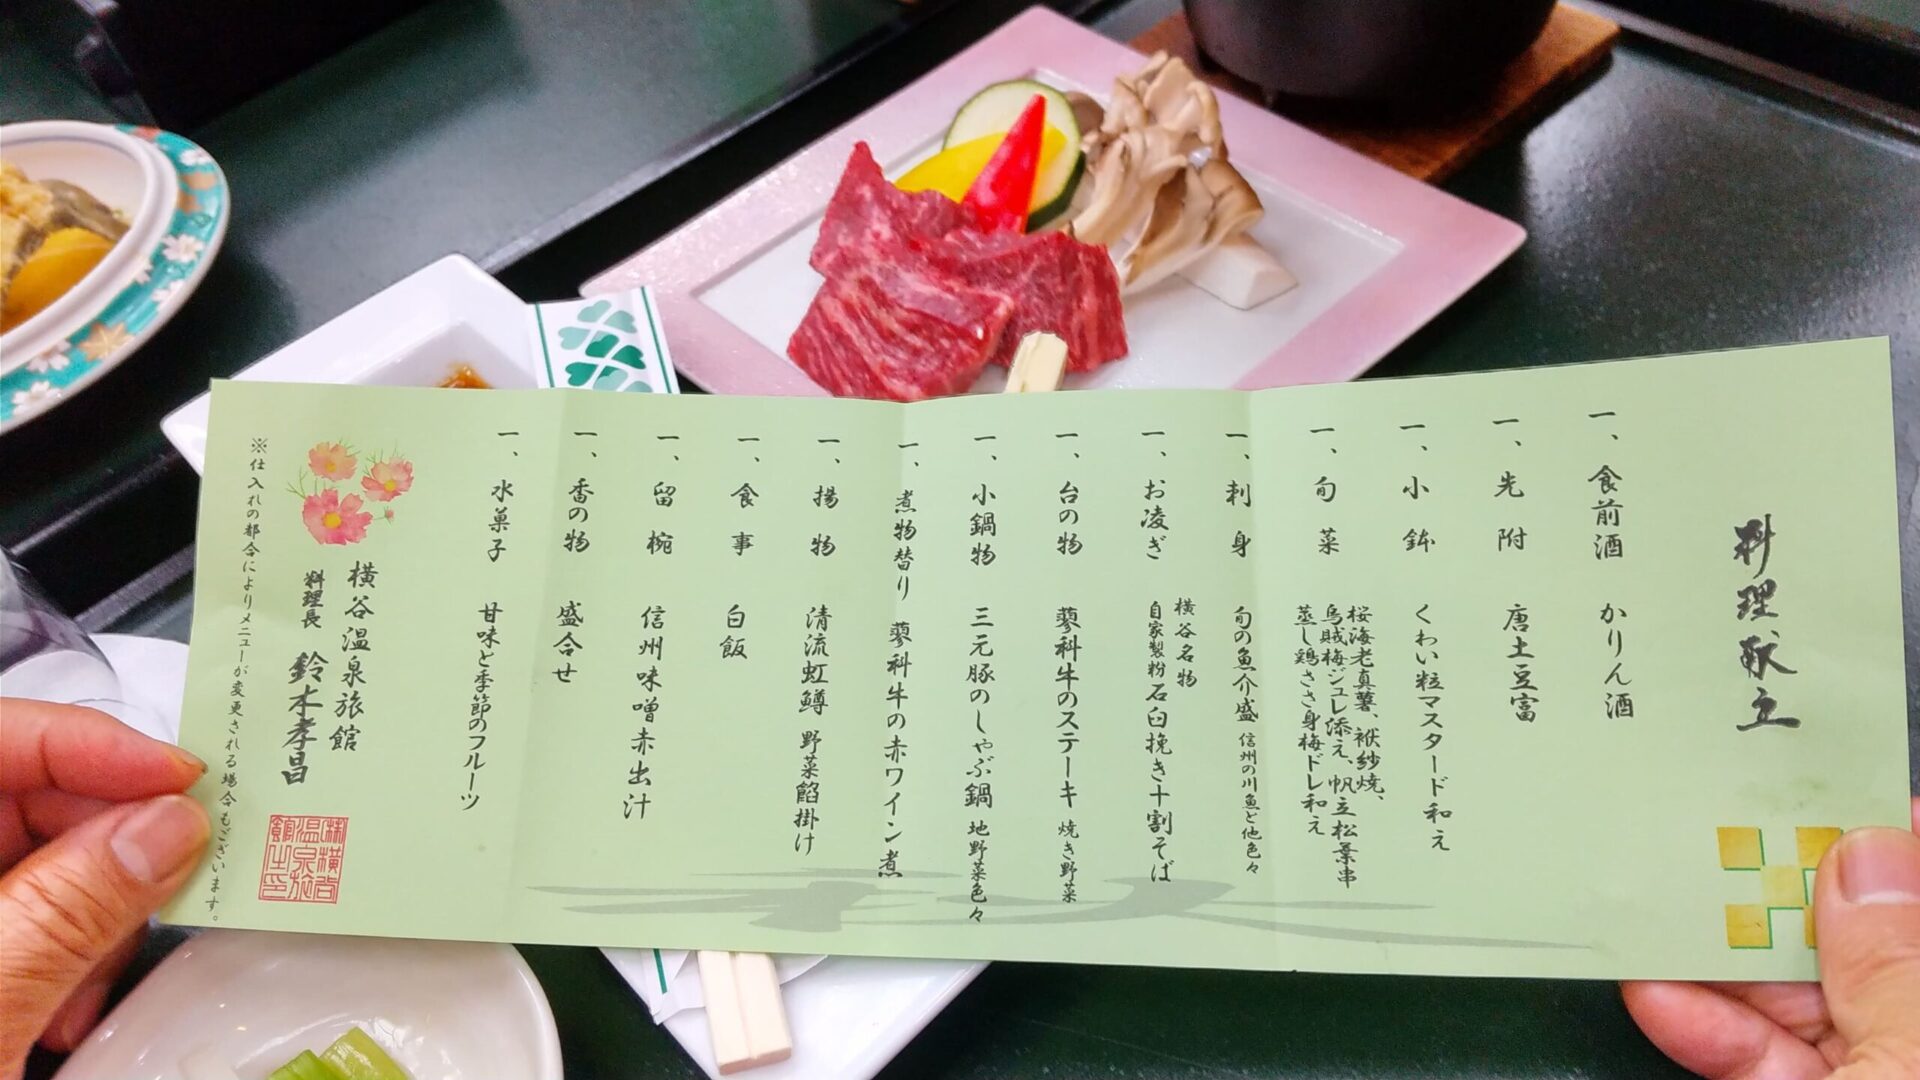 料理献立
一、食前酒 かりん酒
一、先附 唐土豆富
一、小鉢 くわい粒マスタード和え
一、旬菜 桜海老真薯、袱紗焼、
烏賊梅ジュレ添え、帆立松葉串
蒸し鶏ささ身梅ドレ和え
一、刺身 旬の魚介盛 信州の川魚と他色々
一、お凌ぎ 横谷名物
自家製粉石臼挽き十割そば
一、台の物 蓼科牛のステーキ 焼き野菜
一、小鍋物 三元豚のしゃぶ鍋 地野菜色々
一、煮物替り 蓼科牛の赤ワイン煮
一、揚物 清流虹鱒 野菜餡掛け
一、食事 白飯
一、留椀 信州味噌赤出汁
一、香の物 盛合せ
一、水菓子 甘味と季節のフルーツ
横谷温泉旅館
料理長 鈴木孝昌
㈱横谷
温泉旅
館之印
※仕入れの都合によりメニューが変更される場合もございます。